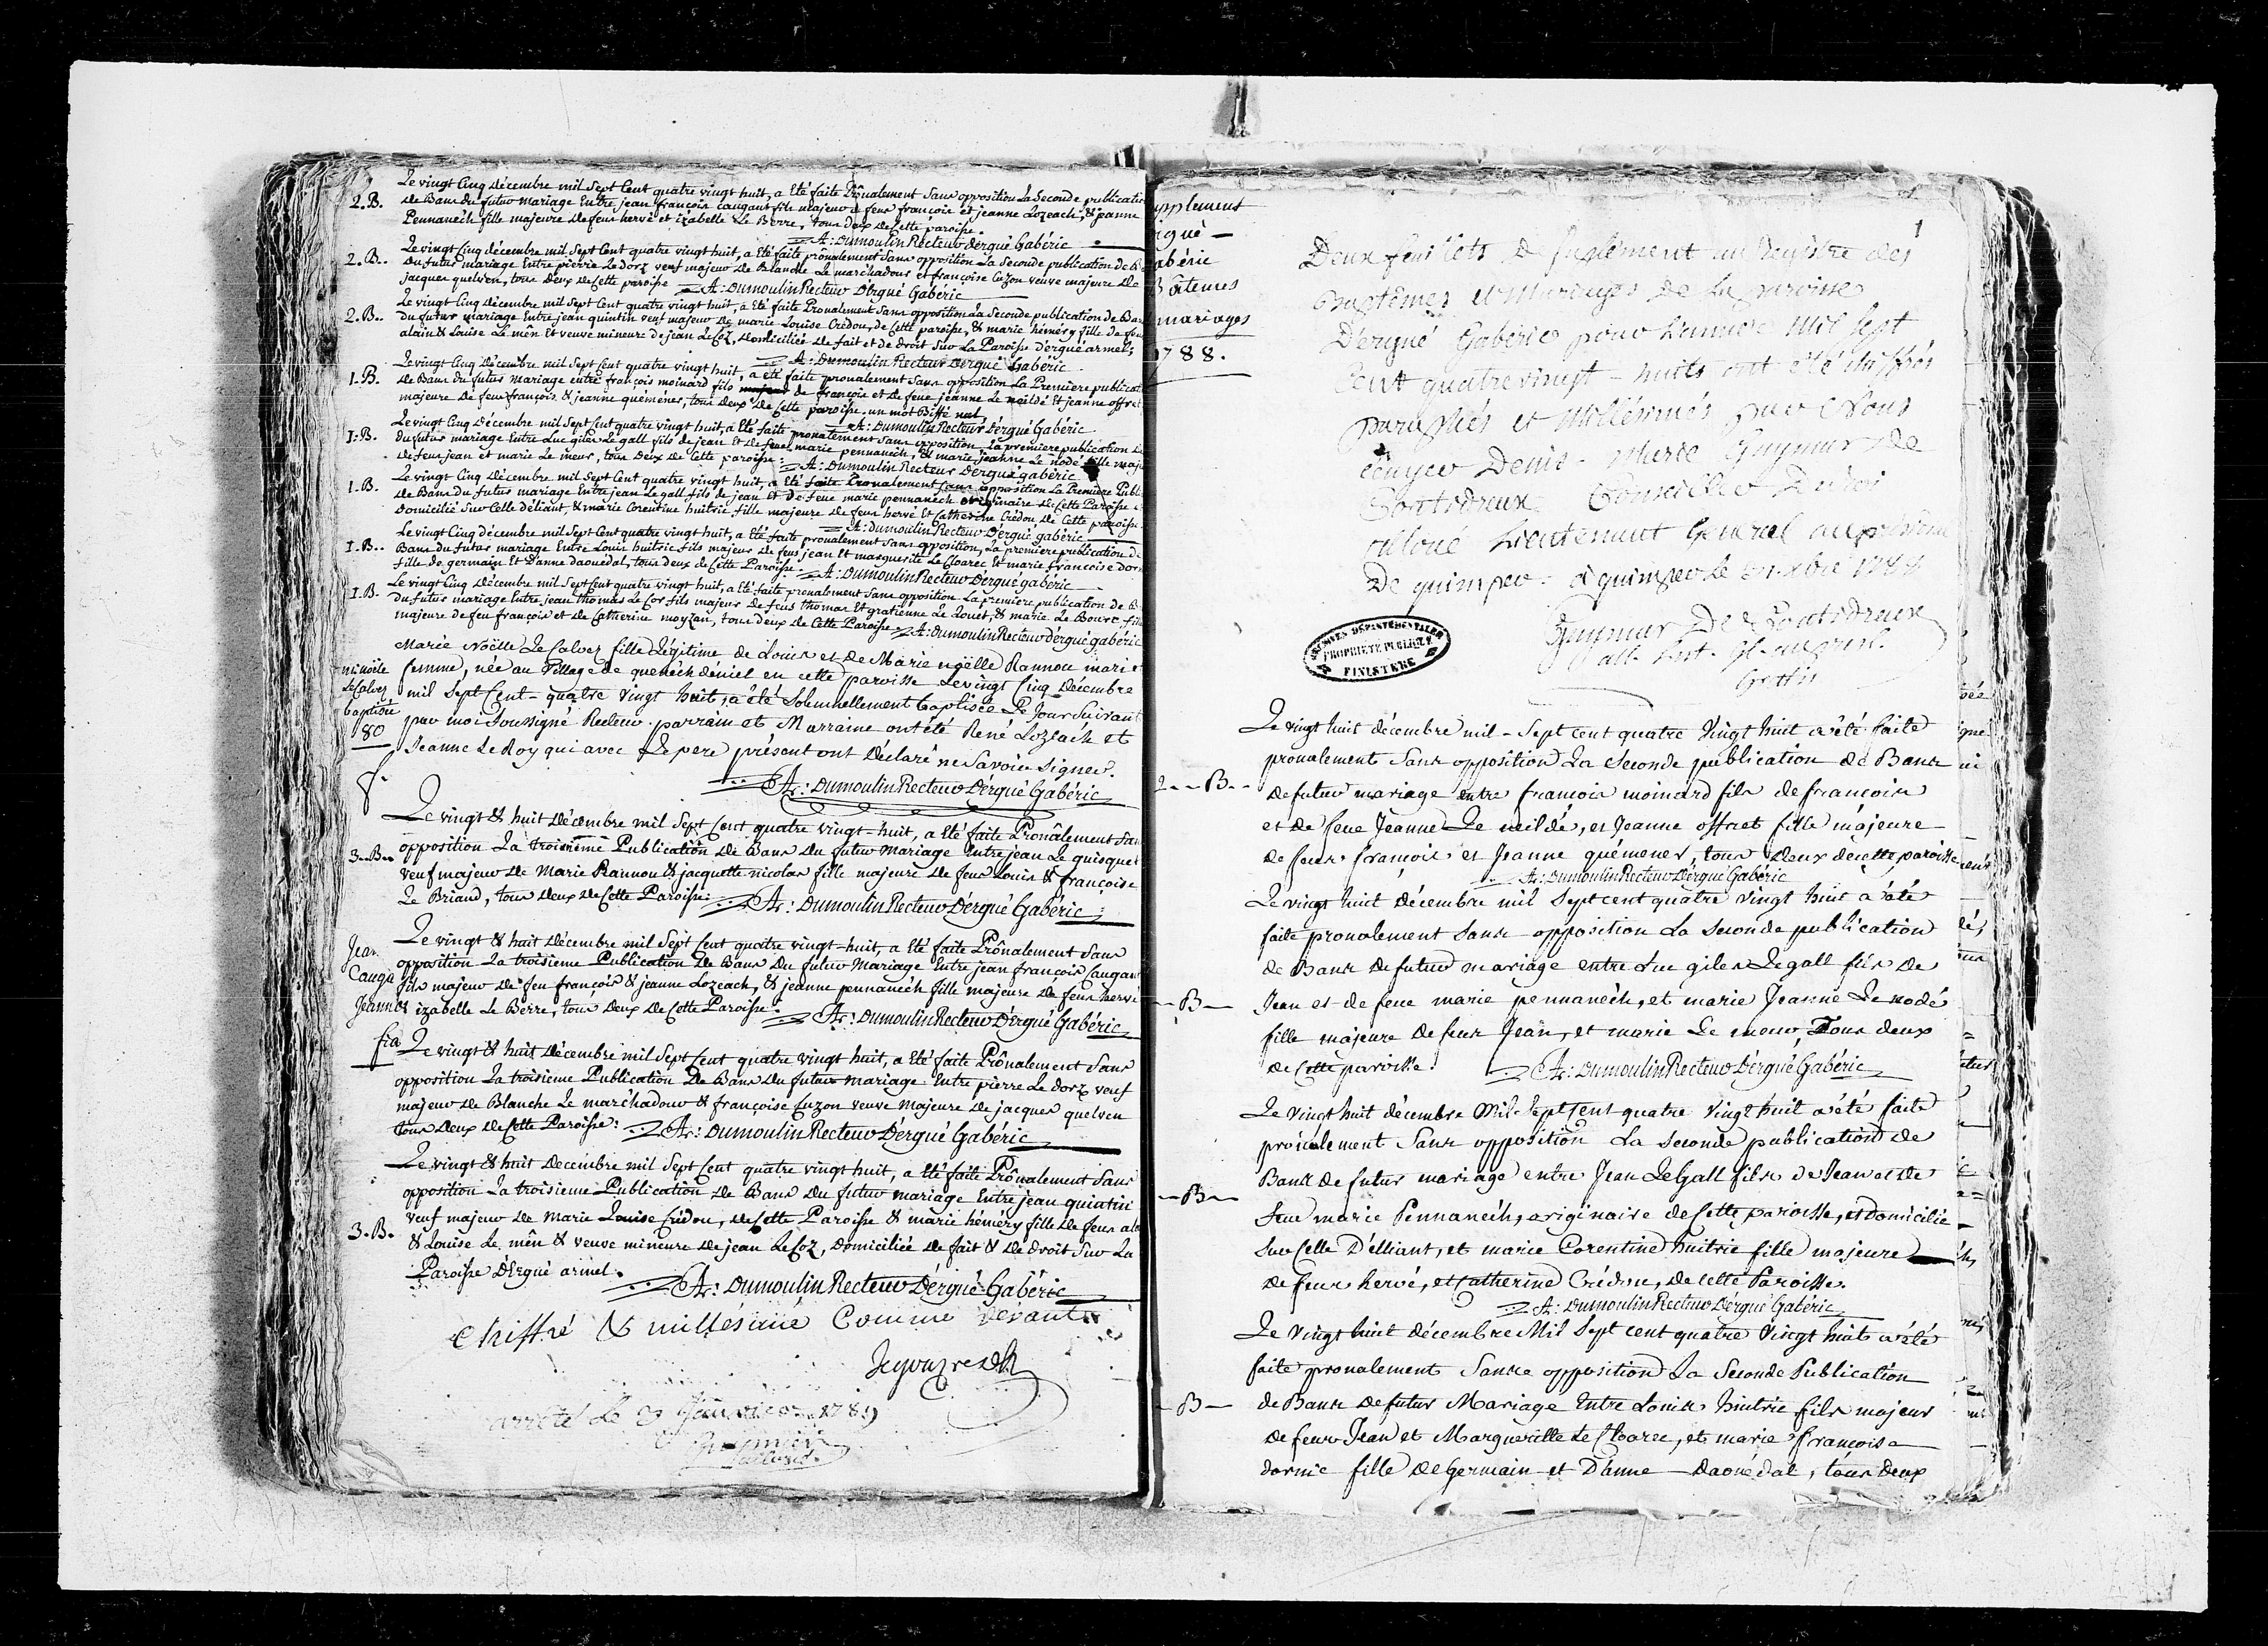 Le vingt Cinq décembre mil Sept Cent quatre vingt huit, a Eté faite Prônalement Sans opposition La Seconde publication
2. B. de Bans du futur mariage Entre jean françois caugant fils majeur de feus françois et jeanne Lozeach, & jeanne
Pennanech fille majeure de feus hervé et izabelle Le Berre, tous deux de Cette paroisse.
A: Dumoulin Recteur d'ergué Gabéric
Le vingt Cinq décembre mil Sept Cent quatre vingt huit, a Eté faite prônalement Sans opposition La Seconde publication de B
2. B. du futur mariage Entre pierre Le dorz veuf majeur de Blanche Le marchadour et françoise Cuzon veuve majeure de
jacques quelven, tous deux de Cette paroisse A: Dumoulin Recteur D'ergué Gabéric
Le vingt Cinq décembre mil Sept Cent quatre vingt huit, a Eté faite Prônalement Sans opposition La Seconde publication de Ban
2. B. du futur mariage Entre jean quintin veuf majeur de marie Louise Crédou, de Cette paroisse, & marie héméry fille de feu
alain & Louise Le mên Et veuve mineure de jean Le Coz, Domiciliée de fait et de droit Sur La Paroisse d'ergué armel;
A: Dumoulin Recteur Dergué Gabéric
Le vingt Cinq Décembre mil Sept Cent quatre vingt huit, a été faite pronalement Sans opposition La Premiere publicat
1. B. de Bans du futur Mariage entre françois moinard fils majeur de françois et de feue jeanne Le neildé Et jeanne offret
majeure de feus françois & jeanne quéméner, tous deux de Cette paroisse. un mot Biffé nul
A: Dumoulin Recteur Dergué Gabéric
Le vingt Cinq Décembre mil Sept Cent quatre vingt huit, a Eté faite pronalement Sans opposition La premiere publication de
1. B. du futur mariage Entre Luc giles Le gall fils de jean Et de feue marie pennanech, & marie jeanne Le nodé fille maje
de feus jean et marie Le meur, tous deux de Cette paroisse: A: Dumoulin Recteur Dergué gabéric
Le vingt Cinq Décembre mil Sept Cent quatre vingt huit, a Eté faite Pronalement Sans opposition La Premiere Publi
1. B. de Bans du futur mariage Entre jean Le gall fils de jean Et de feue marie pennanéch originaire de Cette Paroisse &
Domicilié Sur Celle déliant, & marie Corentine huitric fille majeure de feus hervé Et Catherine Crédou de Cette paroisse
A: Dumoulin Recteur Dérgué gabéric
Le vingt Cinq décembre mil Sept Cent quatre vingt huit, a Eté faite pronalement Sans opposition, La premiere publication de
1. B. Bans du futur mariage Entre Louis huitric fils majeur de feus jean Et marguerite Le Cloarec Et marie françoise dor
fille de germain Et D'anne daouédal, tous deux de Cette Paroisse. A: Dumoulin Recteur Dérgué gabéric
Le vingt Cinq Décembre mil Sept Cent quatre vingt huit, a Eté faite pronalement Sans opposition La premiere publication de B
1. B. du futur mariage Entre jean thomas Le Cor fils majeur de feus thomas Et gratienne Le Louet, & marie Le Bourc fille
majeure de feu françois et de Catherine moyzan, tous deux de Cette Paroisse. A: Dumoulin Recteur dérgué gabéric
Marie Noëlle Le Calvez fille Légitime de Louis et de Marie noëlle Rannou mari &
m: noële femme, née au Village de quenéch déniel en cette paroisse Le vingt Cinq Décembre
Le Calvez mil Sept Cent - quatre vingt huit, a été Solemnellement baptisée Le Jour Suivant
baptisée par moi Soussigné Recteur. parrain et Marraine ont été René Lozeach et
80 Jeanne Le Roy qui avec Le pere présent ont déclaré ne Savoir Signer.
A: Dumoulin Recteur Dérgué Gabéric
Le vingt & huit Décembre mil Sept Cent quatre vingt-huit, a Eté faite Prônalement San
opposition La troisiéme Publication de Bans du futur Mariage Entre jean Le quisque
3. B. veuf majeur de Marie Rannou & jacquette nicolas fille majeure de feus Louis & françoise
Le Briand, tous deux de Cette Paroisse: A: Dumoulin Recteur Dérgué Gabéric
Jean Le vingt & huit Décembre mil Sept Cent quatre vingt-huit, a Eté faite Prônalement Sans
opposition La troisieme Publication de Bans Du futur Mariage Entre jean françois Caugan
Cauga fils majeur de feu françois & jeanne Lozeach, & jeanne pennanéch fille majeure de feus hervé
Jeanne & izabelle Le Berre, tous deux de Cette Paroisse: A: Dumoulin Recteur D'érgué Gabéric
fia Le vingt & huit Décembre mil Sept Cent quatre vingt huit, a Eté faite Prônalement Sans
opposition La troisieme Publication De Bans du futur Mariage Entre pierre Le dorz veuf
majeur de Blanche Le marchadour & françoise Cuzon veuve Majeure de jacques quelven
tous deux de Cette Paroisse: A: Dumoulin Recteur Dérgué Gabéric
Le vingt & huit Decembre mil Sept Cent quatre vingt huit, a Eté faite Prônalement Sans
opposition La troisieme Publication de Bans Du futur mariage Entre jean quintin
veuf majeur de Marie Louise Crédou, de Cette Paroisse & marie héméry fille de feus ala
3. B. & Louise Le mên & veuve mineure de jean Le Coz, Domiciliée de fait & de droit Sur La
Paroisse D'Ergué armel. A: Dumoulin Recteur Dérgué Gabéric
Chiffré & millésimé Comme devant
arrêté le 9 Janvier 1789
upplement
rgué -
abéric
Bâtemes
mariages
1788.
1
Deux feuillets de suplément au Registre des
Baptêmes et Mariages de la paroisse
D'ergué Gabéric pour L'année Mil sept
Cent quatre vingt - huits ont été chiffrés
paraphés et Millésimés par Nous
écuyer Denis - Marie Guymar de
Coatidreux Conseiller du Roi
alloué Lieutenant Général au présidial
De quimper - à quimper le 1788
Guymar De Coatidreux
all. Lieut. Gl. au presl.
Gratis
ARCHIVES DÉPARTEMENTALES
PROPRIETE PUBLIQUE
FINISTERE
Le vingt huit décembre mil - Sept cent quatre Vingt huit a été faite
pronalement Sans opposition La Seconde publication de Bans
2 - - B - - de futur mariage entre françois moinard fils de françois
et de feue Jeanne Le neildé, et Jeanne offret fille majeure
de feus françois et Jeanne quémener, tous deux de cette paroisse
A: Dumoulin Recteur Dérgué Gabéric
Le vingt huit Décembre mil Sept cent quatre vingt huit a été
faite pronalement Sans opposition La Seconde publication
de Bans de futur mariage entre Luc giles Le gall fils de
- B - Jean et de feue marie pennanéch, et marie Jeanne Le nodé
fille majeure de feus Jean, et marie Le meur, Tous deux
de Cette paroisse. A: Dumoulin Recteur Dérgué Gabéric
Le vingt huit décembre Mil Sept Cent quatre Vingt huit a été faite
pronalement Sans opposition La Seconde publication de
Bans de futur mariage entre Jean Le Gall fils de Jean et de
- B - feue marie Pennanéch, originaire de Cette paroisse, et domicilié
Sur Celle D'elliant, et marie Corentine huitric fille majeure
de feus hervé, et Catherine Crédou, de cette Paroisse.
A: Dumoulin Recteur Dérgué Gabéric
Le Vingt huit décembre Mil Sept cent quatre Vingt huit a été
faite pronalement Sans opposition La Seconde Publication
- B - de Bans de futur Mariage Entre Louis huitric fils majeur
de feus Jean et Margueritte Le Cloarec, et marie françoise
dornic fille de Germain et D'anne Daouédal, tous deux